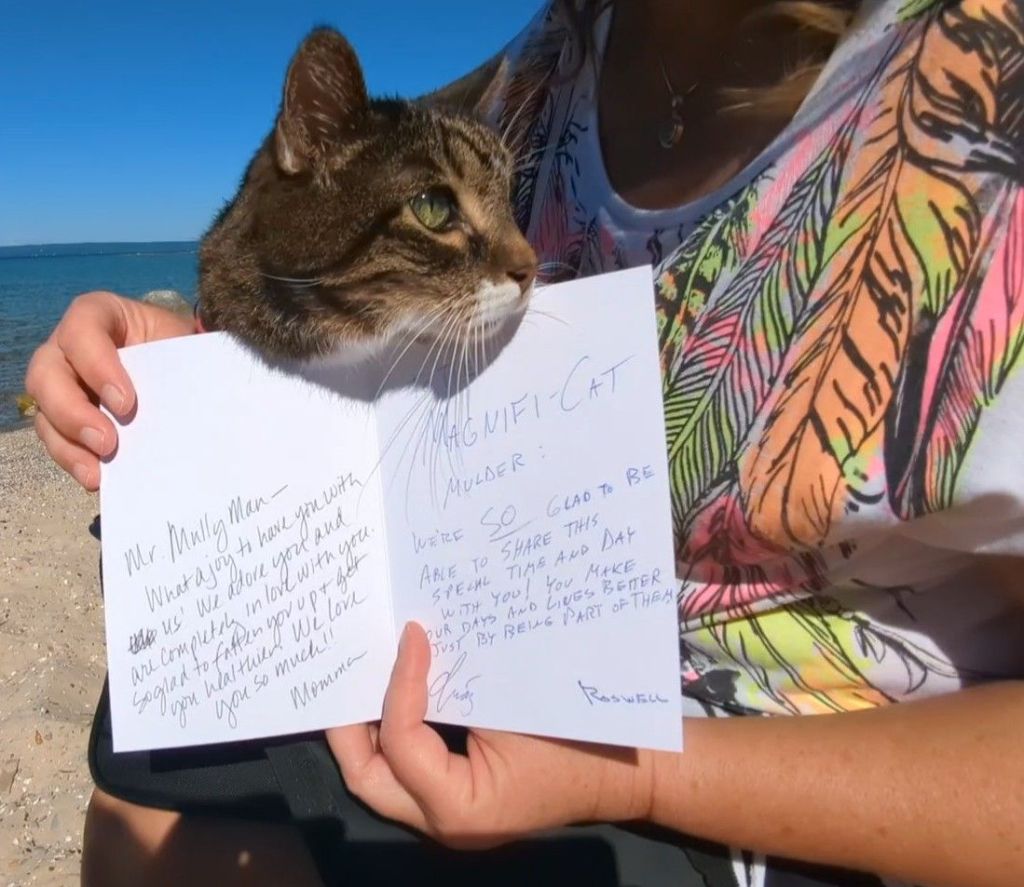 Mr. Mully Man —
What a joy to have you with
us! We adore you and
are completely in love with you.
So glad to fatten you up & get
you healthier! We love
you so much!!
Momma
MAGNIFI-CAT
MULDER:
WE'RE SO GLAD TO BE
ABLE TO SHARE THIS
SPECIAL TIME AND DAY
WITH YOU! YOU MAKE
OUR DAYS AND LIVES BETTER
JUST BY BEING PART OF THEM
ROSWELL